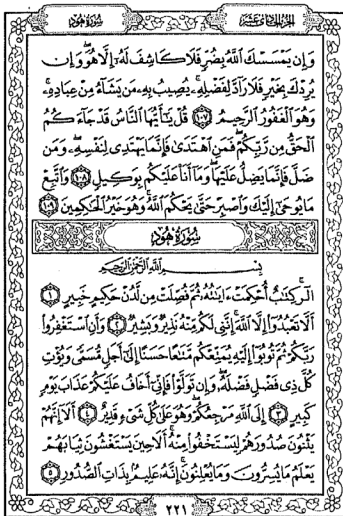 الجزء الحادي عشر
سورة هود
وَإِن يَمْسَسْكَ اللَّهُ بِضُرٍّ فَلَا كَاشِفَ لَهُ إِلَّا هُوَ وَإِن
يُرِدْكَ بِخَيْرٍ فَلَا رَادَّ لِفَضْلِهِ يُصِيبُ بِهِ مَن يَشَاءُ مِنْ عِبَادِهِ
وَهُوَ الْغَفُورُ الرَّحِيمُ ١٠٧ قُلْ يَا أَيُّهَا النَّاسُ قَدْ جَاءَكُمُ
الْحَقُّ مِن رَّبِّكُمْ فَمَنِ اهْتَدَى فَإِنَّمَا يَهْتَدِي لِنَفْسِهِ وَمَن
ضَلَّ فَإِنَّمَا يَضِلُّ عَلَيْهَا وَمَا أَنَا عَلَيْكُم بِوَكِيلٍ ١٠٨ وَاتَّبِعْ
مَا يُوحَى إِلَيْكَ وَاصْبِرْ حَتَّى يَحْكُمَ اللَّهُ وَهُوَ خَيْرُ الْحَاكِمِينَ ١٠٩
سورة هود
بِسْمِ اللَّهِ الرَّحْمَنِ الرَّحِيمِ
الر كِتَابٌ أُحْكِمَتْ آيَاتُهُ ثُمَّ فُصِّلَتْ مِن لَّدُنْ حَكِيمٍ خَبِيرٍ ١
أَلَّا تَعْبُدُوا إِلَّا اللَّهَ إِنَّنِي لَكُم مِّنْهُ نَذِيرٌ وَبَشِيرٌ ٢ وَأَنِ اسْتَغْفِرُوا
رَبَّكُمْ ثُمَّ تُوبُوا إِلَيْهِ يُمَتِّعْكُم مَّتَاعًا حَسَنًا إِلَى أَجَلٍ مُّسَمًّى وَيُؤْتِ
كُلَّ ذِي فَضْلٍ فَضْلَهُ وَإِن تَوَلَّوْا فَإِنِّي أَخَافُ عَلَيْكُمْ عَذَابَ يَوْمٍ
كَبِيرٍ ٣ إِلَى اللَّهِ مَرْجِعُكُمْ وَهُوَ عَلَى كُلِّ شَيْءٍ قَدِيرٌ ٤ أَلَا إِنَّهُمْ
يَثْنُونَ صُدُورَهُمْ لِيَسْتَخْفُوا مِنْهُ أَلَا حِينَ يَسْتَغْشُونَ ثِيَابَهُمْ
يَعْلَمُ مَا يُسِرُّونَ وَمَا يُعْلِنُونَ إِنَّهُ عَلِيمٌ بِذَاتِ الصُّدُورِ ٥
٢٢١